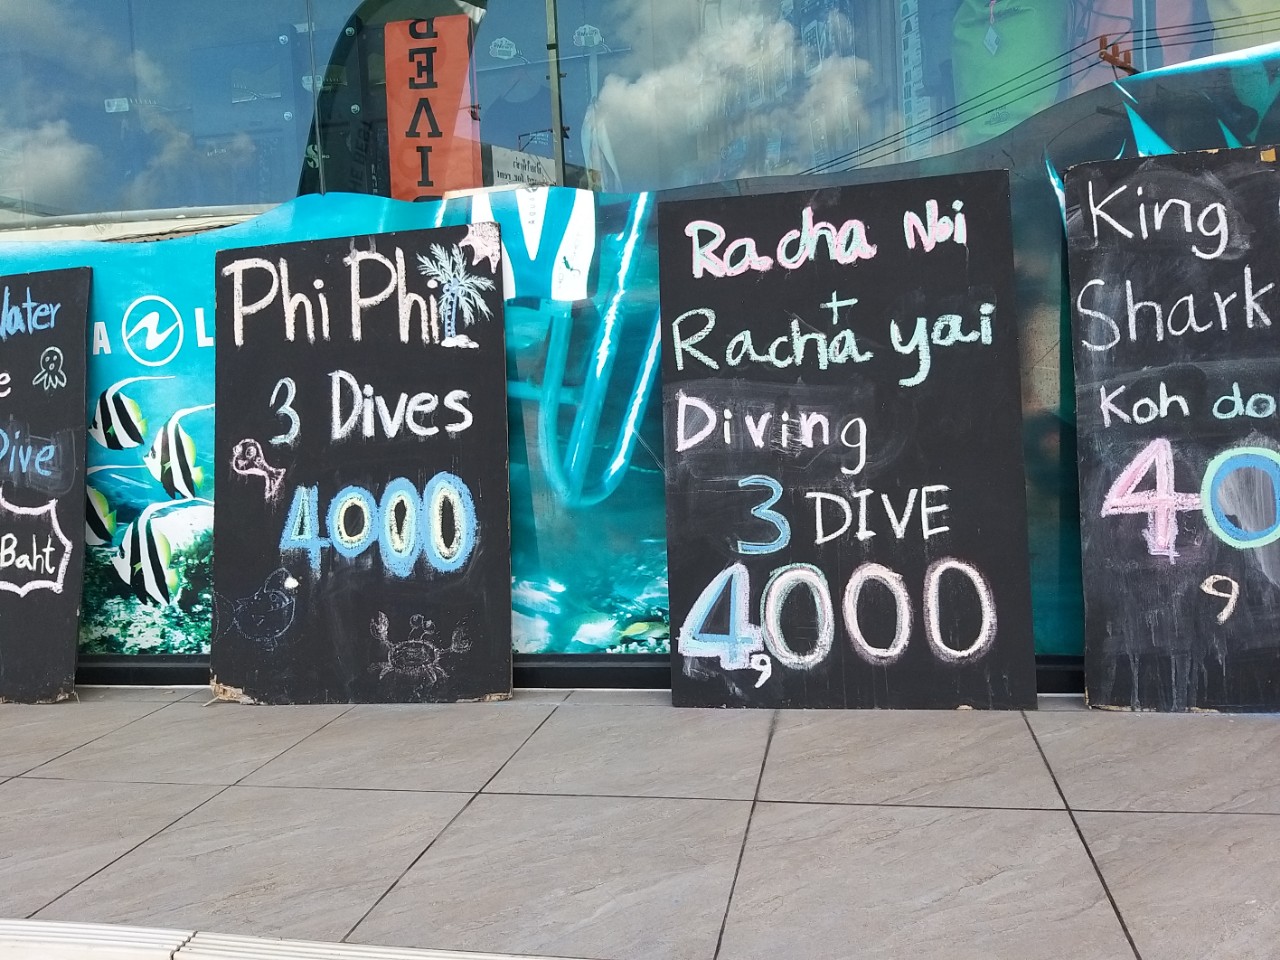 REVIS
A
L
Water
e
Dive
Baht
Phi Phi
3 Dives
4000
Racha Noi
+
Racha yai
Diving
3 DIVE
4,000
King
Shark
Koh do
40
,